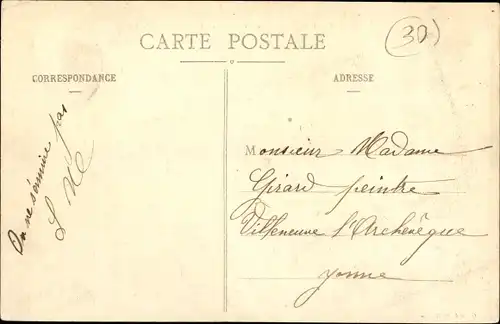 CARTE POSTALE
30
CORRESPONDANCE
ADRESSE
On ne s'ennuie pas
L
Monsieur Madame
Girard peintre
Villeneuve l'Archevêque
Yonne